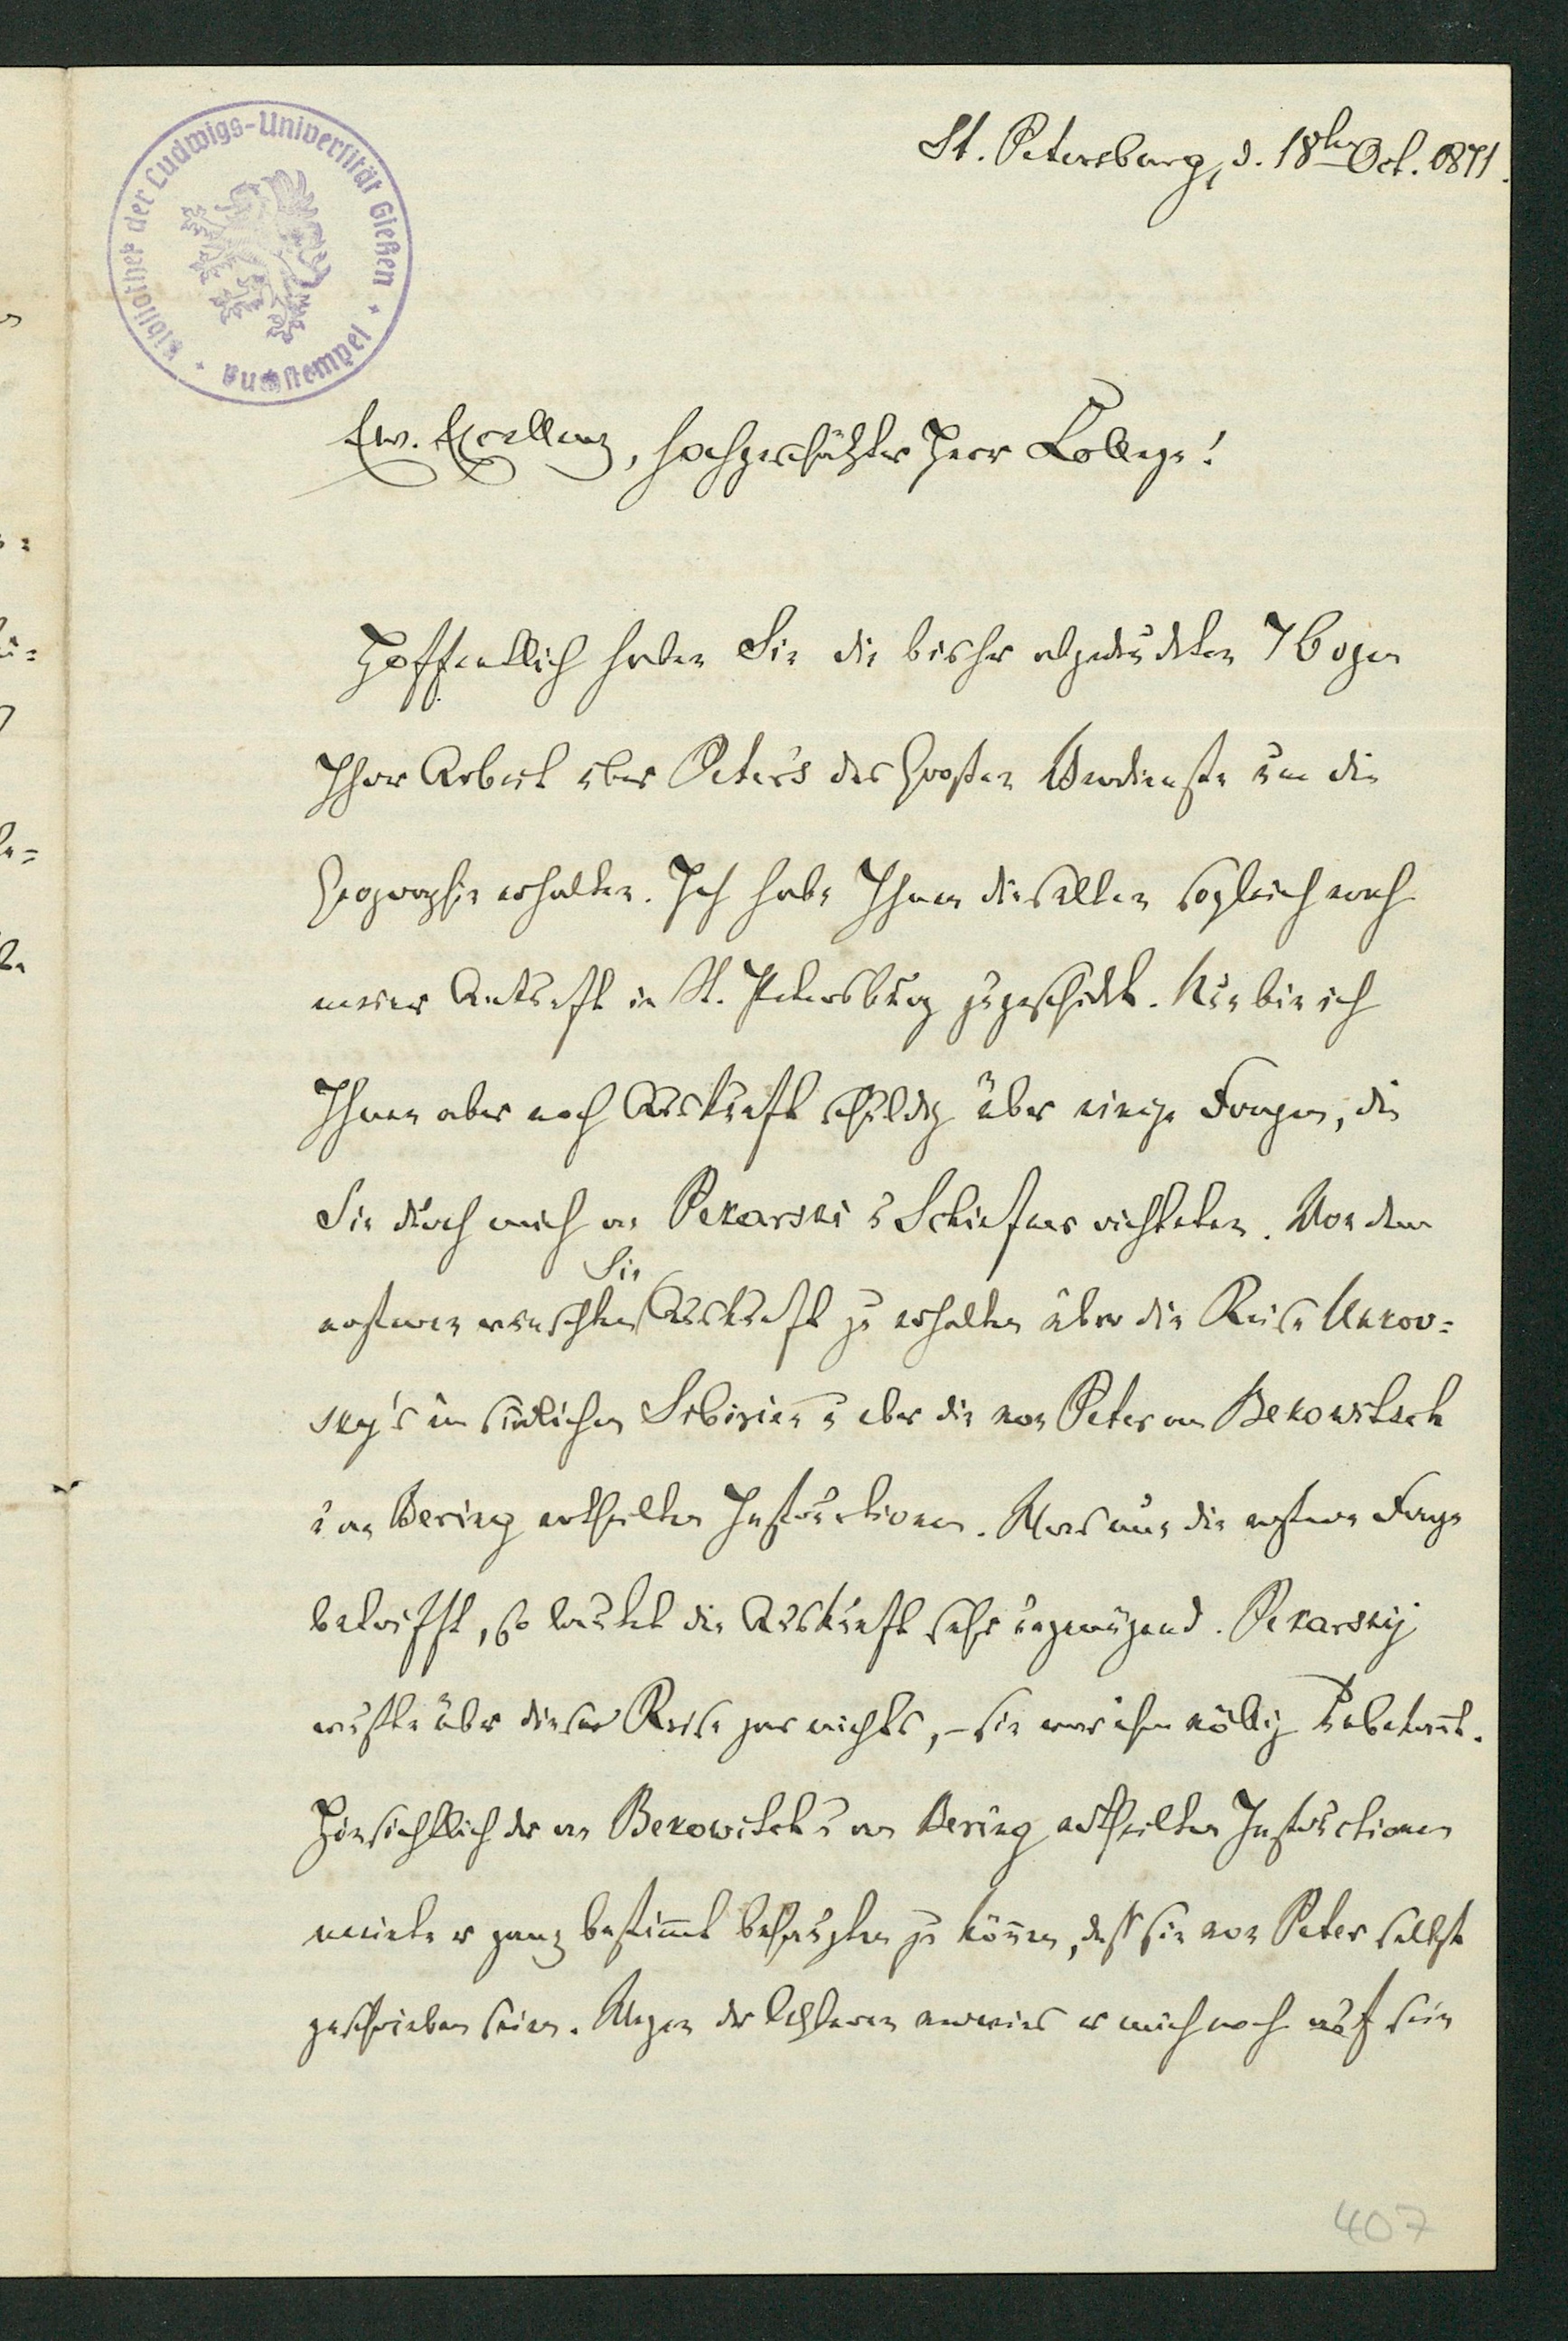 Bibliothek der Ludwigs-Universität Gießen
Buchstempel
St. Petersburg, d. 18ten Oct. 1871.
Ew. Excellenz, hochgeschätzter Herr College!
Hoffentlich haben Sie die bisher abgedruckten 7 Bogen
Ihrer Arbeit über Peter's des Großen Verdienste um die
Geographie erhalten. Ich habe Ihnen dieselben sogleich nach
meiner Ankunft in St. Petersburg zugeschickt. Nun bin ich
Ihnen aber noch Auskunft schuldig über einige Fragen, die
Sie durch mich an Pekarski u Schiefner richteten. Von dem
ersteren wünschten Sie Auskunft zu erhalten über die Reise Unkov=
sky's im südlichen Sibirien u über die von Peter an Bekowitsch
u an Bering ertheilten Instructionen. Was nun die erstere Frage
betrifft, so lautet die Auskunft sehr ungenügend. Pekarskij
wußte über diese Reise gar nichts, – sie war ihm völlig unbekannt.
Hinsichtlich der an Bekowitsch u an Bering ertheilten Instructionen
meinte er ganz bestimmt behaupten zu können, daß sie von Peter selbst
geschrieben seien. Wegen der letzteren verwies er mich noch auf sein
407